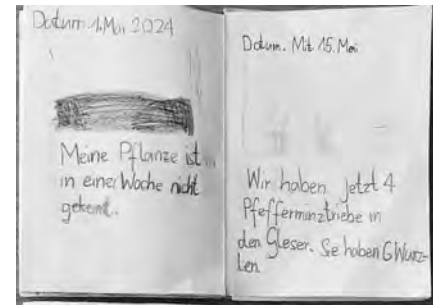 Datum. 1. Mai 2024
Meine Pflanze ist...
in einer Woche nicht
gekeimt.
Datum. Mit 15. Mai
Wir haben jetzt 4
Pfefferminztriebe in
den Gleser. Sie haben 6 Wurz-
len